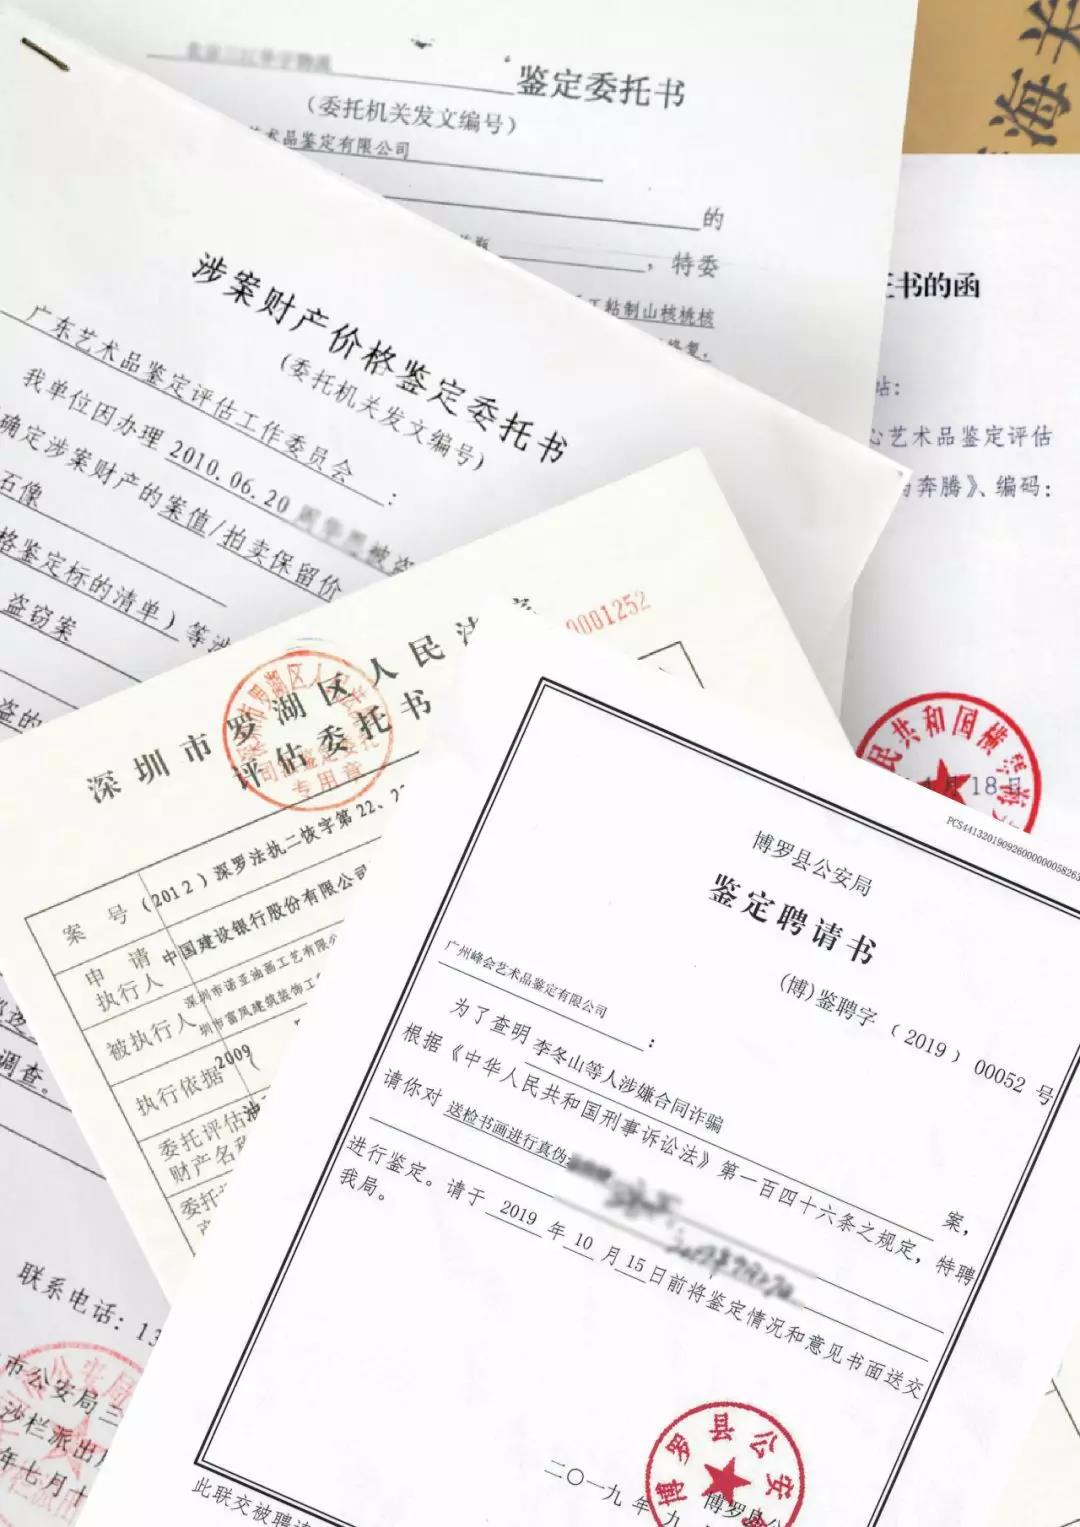 鉴定委托书
(委托机关发文编号)
艺术品鉴定有限公司
的
，特委
工粘制山核桃核
海关
书的函
站：
心艺术品鉴定评估
奔腾》、编码：
民共和国横
月18日
涉案财产价格鉴定委托书
(委托机关发文编号)
广东艺术品鉴定评估工作委员会：
我单位因办理2010.06.20 被盗
确定涉案财产的案值/拍卖保留价
石像
格鉴定标的清单)等涉
盗窃案
盗的
调查。
联系电话：13
市公安局三
沙栏派出
年七月十
0001252
深圳市罗湖区人民法
评估委托书
专用章
案号 (2012)深罗法执二恢字第22、2
申请执行人 中国建设银行股份有限公司
被执行人 深圳市诺亚油画工艺有限公
圳市富凤建筑装饰工
执行依据 2009(
委托评估 油
财产名称
委托
PCS4413201909260000000058263
博罗县公安局
鉴定聘请书
(博)鉴聘字〔2019〕00052号
广州峰会艺术品鉴定有限公司：
为了查明 李冬山等人涉嫌合同诈骗 案，
根据《中华人民共和国刑事诉讼法》第一百四十六条之规定，特聘
请你对 送检书画进行真伪
进行鉴定。请于 2019 年 10 月 15 日前将鉴定情况和意见书面送交
我局。
博罗县公安
博罗县公
二〇一九年九
此联交被聘请